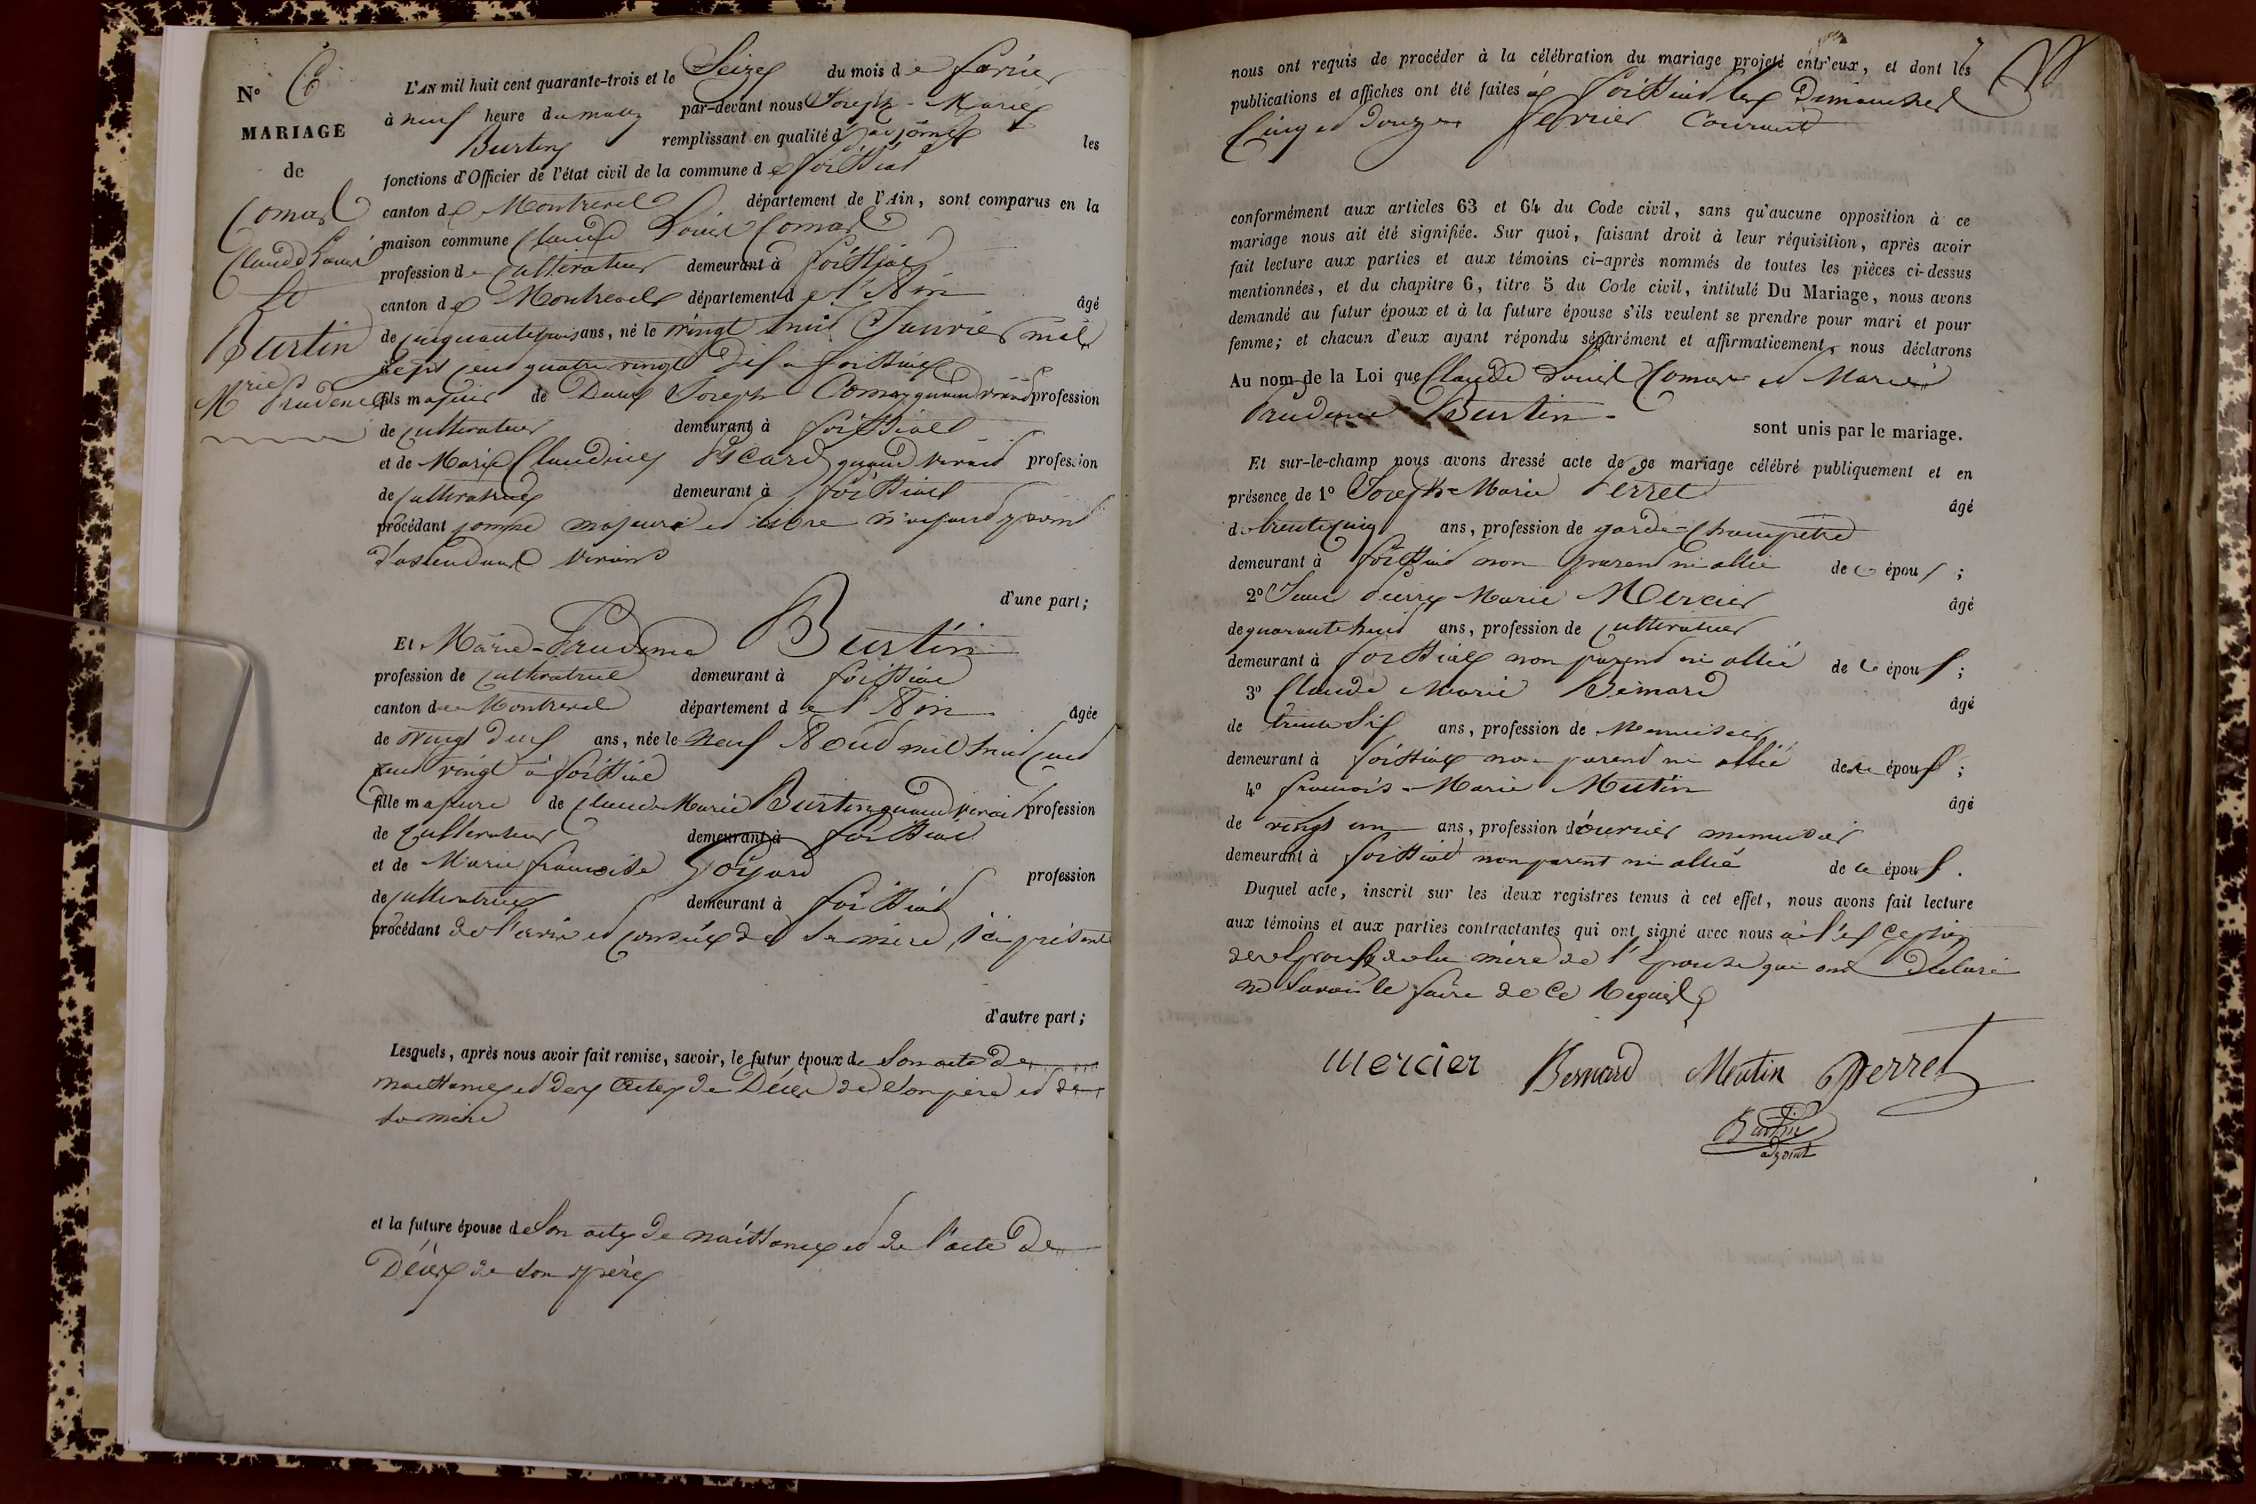 N° 6
MARIAGE
de
Comas
Claude Louis
et
Burtin
Marie
Prudence
L'AN mil huit cent quarante-trois et le Seize du mois de fevrier
à neuf heure du matin par-devant nous Joseph-Marie
Burtin remplissant en qualité d'adjoint les
fonctions d'Officier de l'état civil de la commune de foissiat
canton de Montrevel département de l'Ain, sont comparus en la
maison commune Claude Louis Comas
profession de cultivateur demeurant à foissiat
canton de Montrevel département de l'Ain âgé
de cinquante trois ans, né le vingt huit Janvier mil
sept cent quatre vingt dix à foissiat
fils majeur de Joseph Comas quand vivait profession
de cultivateur demeurant à foissiat
et de Marie Claudine Picard quand vivait profession
de cultivatrice demeurant à foissiat
procédant comme majeur et libre n'ayant point
d'ascendant vivant
d'une part;
Et Marie-Prudence Burtin
profession de cultivatrice demeurant à foissiat
canton de Montrevel département de l'Ain âgée
de vingt deux ans, née le neuf Aout mil huit cent
vingt à foissiat
fille majeure de Claude Marie Burtin quand vivait profession
de cultivateur demeurant à foissiat
et de Marie françoise Goyard profession
de cultivatrice demeurant à foissiat
procédant de l'avis et conseil de sa mère ici présente
d'autre part;
Lesquels, après nous avoir fait remise, savoir, le futur époux de Son acte de
naissance et des actes de Décès de Son père et de
sa mère
et la future épouse de Son acte de naissance et de l'acte de
Décès de son père
nous ont requis de procéder à la célébration du mariage projeté entr'eux, et dont les
publications et affiches ont été faites à foissiat les Dimanches
Cinq et douze fevrier Courant
conformément aux articles 63 et 64 du Code civil, sans qu'aucune opposition à ce
mariage nous ait été signifiée. Sur quoi, faisant droit à leur réquisition, après avoir
fait lecture aux parties et aux témoins ci-après nommés de toutes les pièces ci-dessus
mentionnées, et du chapitre 6, titre 5 du Code civil, intitulé Du Mariage, nous avons
demandé au futur époux et à la future épouse s'ils veulent se prendre pour mari et pour
femme; et chacun d'eux ayant répondu séparément et affirmativement, nous déclarons
Au nom de la Loi que Claude Louis Comas et Marie
Prudence Burtin
sont unis par le mariage.
Et sur-le-champ nous avons dressé acte de ce mariage célébré publiquement et en
présence de 1° Joseph-Marie Perret âgé
de trente cinq ans, profession de garde-Champetre
demeurant à foissiat non parent ni allié de ce époux;
2° Jean Pierre Marie Mercier âgé
de quarante huit ans, profession de cultivateur
demeurant à foissiat non parent ni allié de ce époux;
3° Claude Marie Bernard âgé
de trente Six ans, profession de Menuisier
demeurant à foissiat non parent ni allié de ce époux;
4° françois-Marie Mutin âgé
de vingt un ans, profession d'ouvrier menuisier
demeurant à foissiat non parent ni allié de ce époux.
Duquel acte, inscrit sur les deux registres tenus à cet effet, nous avons fait lecture
aux témoins et aux parties contractantes qui ont signé avec nous à l'exception
des époux et de la mère de l'épouse qui ont déclaré
ne Savoir le faire de Ce Requis
Mercier Bernard Mutin Perret
Burtin
adjoint